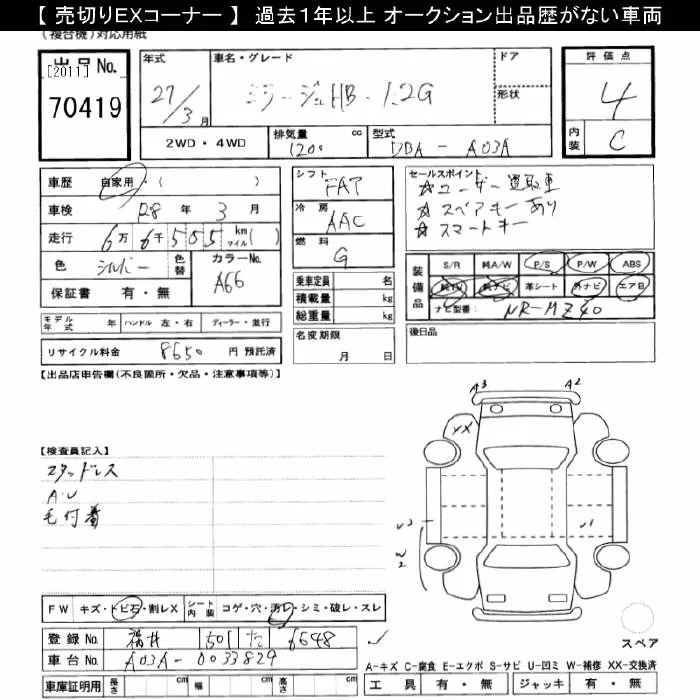 【 売切りEXコーナー 】 過去１年以上 オークション出品歴がない車両
(複合機)対応用紙
出品No.
[2011]
70419
年式 27/3月
車名・グレード ミラージュHB 1.2G
ドア
形状
評価点 4
内装 C
2WD・4WD
排気量 1200 cc
型式 DBA - A03A
車歴 自家用・( )
車検 R8 年 3 月
走行 6万 6千 505 km マイル( )
色 シルバー 色替
カラーNo. A66
保証書 有・無
シフト FAT
冷房 AAC
燃料 G
乗車定員 名
積載量 kg
総重量 kg
セールスポイント
☆ユーザー買取車
☆スペアキーあり
☆スマートキー
装備品 S/R 純A/W P/S P/W ABS
純TV 純ナビ 革シート 外ナビ エアB
ナビ型番: NR-MZ40
モデル年式 年 ハンドル 左・右 ディーラー・並行
リサイクル料金 8650 円 預託済
名変期限 月 日
後日品
【出品店申告欄(不良箇所・欠品・注意事項等)】
A3 A2
XX
【検査員記入】
スタッドレス
A.U
毛付着
U2
U1
W2
FW キズ・トビ石・割レX シート内装 コゲ・穴・汚レ・シミ・破レ・スレ
登録No. 福井 501 た 6548
車台No. A03A-0033829
スペア
A-キズ C-腐食 E-エクボ S-サビ U-凹ミ W-補修 XX-交換済
車庫証明用 長さ cm 幅 cm 高さ cm
工具 有・無 ジャッキ 有・無